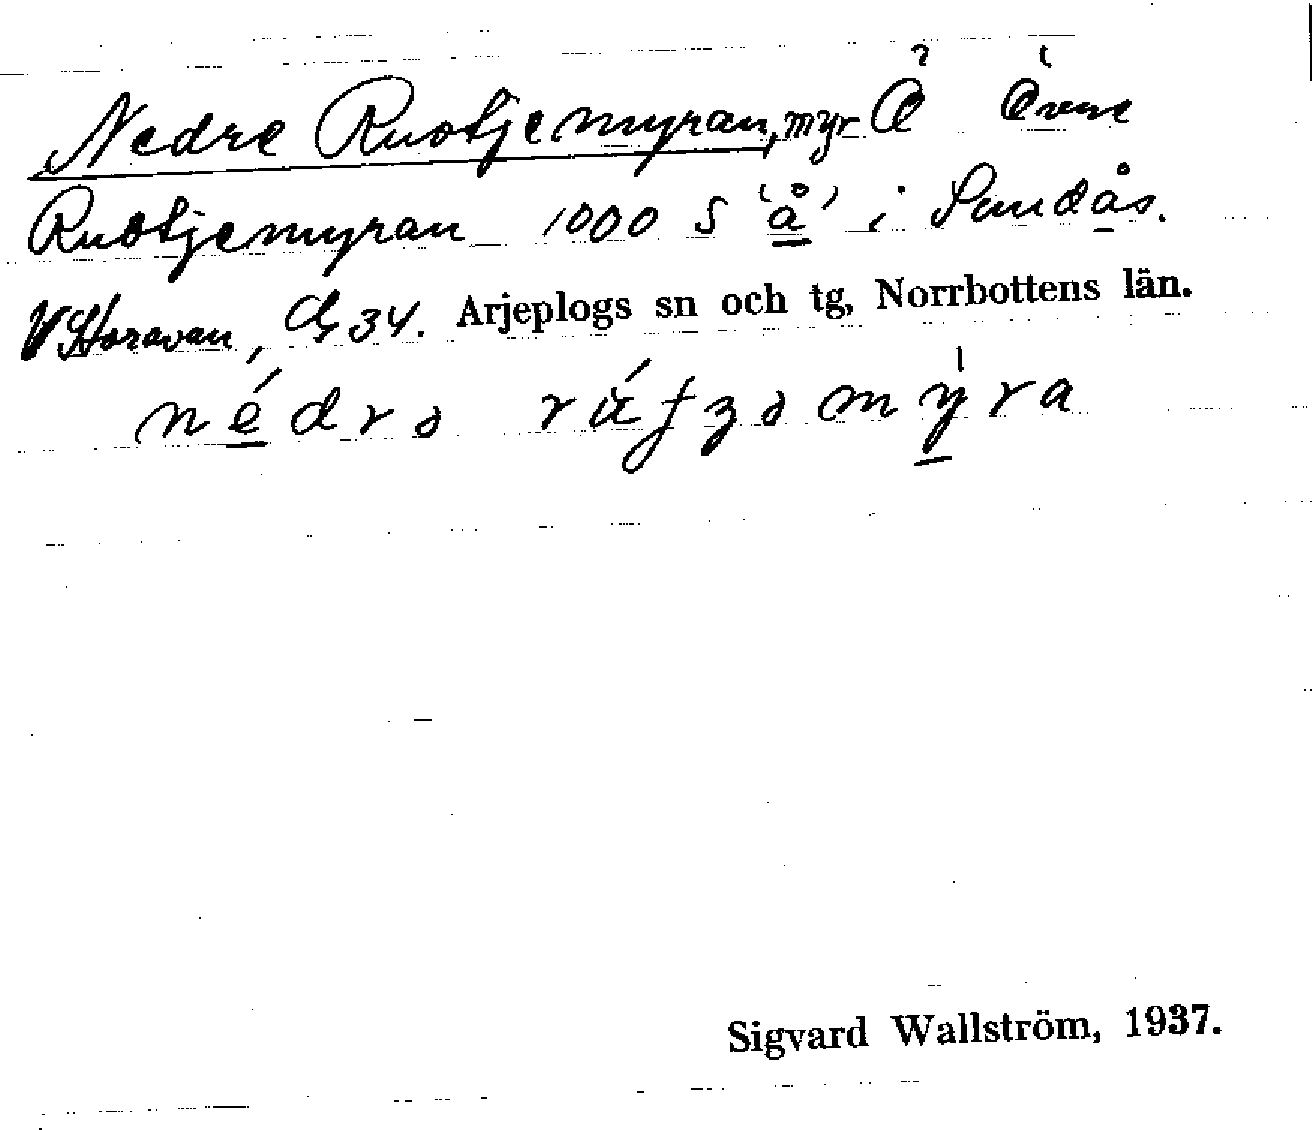 Nedre Ruotjemyran, myr Ö Övre
Ruotjemyran 1000 S 'å' i Sandås.
V Storavan, 34. Arjeplogs sn och tg, Norrbottens län.
Sigvard Wallström, 1937.